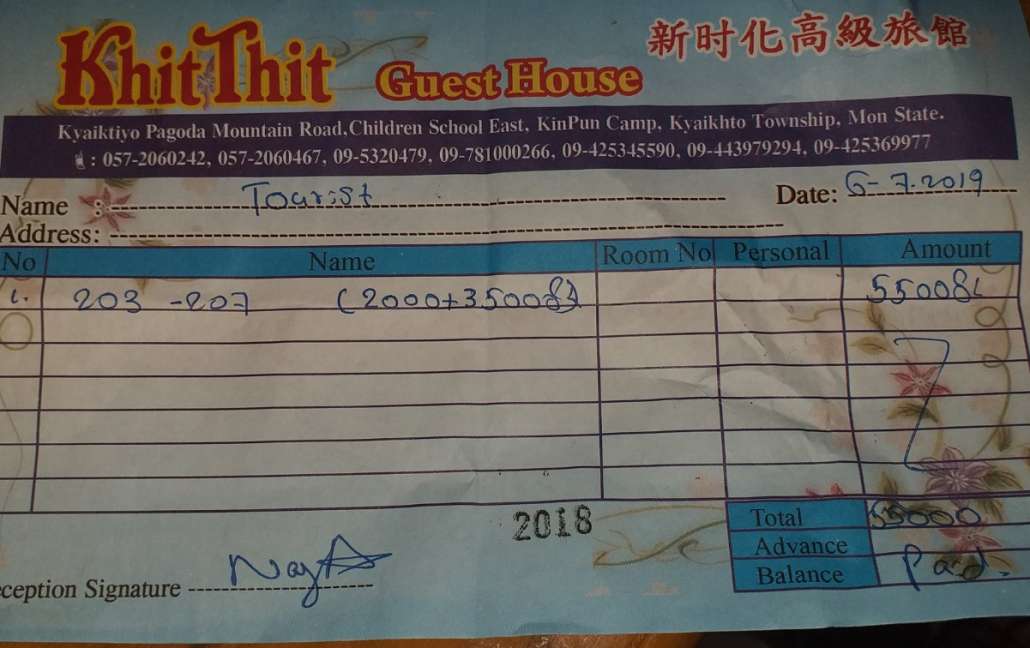 Khit Thit Guest House 新时化高級旅館
Kyaiktiyo Pagoda Mountain Road,Children School East, KinPun Camp, Kyaikhto Township, Mon State.
: 057-2060242, 057-2060467, 09-5320479, 09-781000266, 09-425345590, 09-443979294, 09-425369977
Name Tourist Date: 6-7.2019
Address:
No Name Room No Personal Amount
1. 203 -207
2018
Total 55000
Advance
Balance Paid.
ception Signature